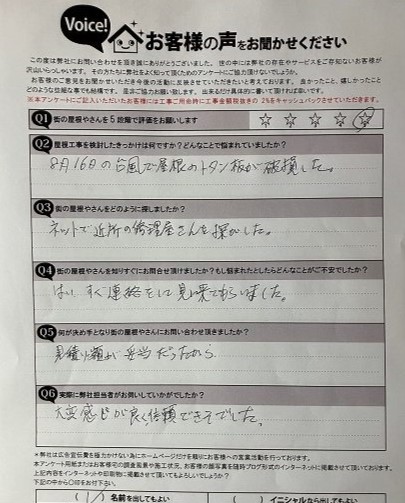 Voice!
お客様の声をお聞かせください
この度は弊社にお問い合わせを頂き誠にありがとうございました。世の中には弊社の存在やサービスをご存知ないお客様が
沢山いらっしゃいます。その方たちに弊社をよく知って頂くためのアンケートにご協力頂けないでしょうか。
お客様のご意見をお聞かせいただき今後の活動に反映させていただきたいと考えております。良かったこと、嬉しかったこと
どのような些細な事でも結構です。是非ご協力お願い致します。出来るだけ具体的に書いて頂ければ幸いです。
※本アンケートにご記入いただいたお客様には工事ご用命時に工事金額税抜きの2%をキャッシュバックさせていただきます。
Q1 街の屋根やさんを5段階で評価をお願いします
Q2 屋根工事を検討したきっかけは何ですか?どんなことで悩まれていましたか?
8月16日の台風で屋根のトタン板が破損した。
Q3 街の屋根やさんをどのように探しましたか?
ネットで近所の修理屋さんを探がした。
Q4 街の屋根やさんを知りすぐにお問合せ頂けましたか?もし悩まれたとしたらどんなことがご不安でしたか?
はい、すぐ連絡をして見に来てもらいました。
Q5 何が決め手となり街の屋根やさんにお問い合わせ頂きましたか?
見積り額が妥当だったから
Q6 実際に弊社担当者がお伺いしていかがでしたか?
大変感じが良く信頼できそうでした。
*弊社は広告宣伝費を極力かけない為にホームページだけを頼りにお客様への営業活動を行っております。
本アンケート用紙またはお客様宅の調査風景や施工状況、お客様の顔写真を随時ブログ形式のインターネットに掲載させて頂いております。
上記内容をインターネットや印刷物に掲載させて頂いてもよろしいでしょうか?
下記の中から〇印をお付け下さい。
( ) 名前を出してもよい ( ) イニシャルなら出してもよい